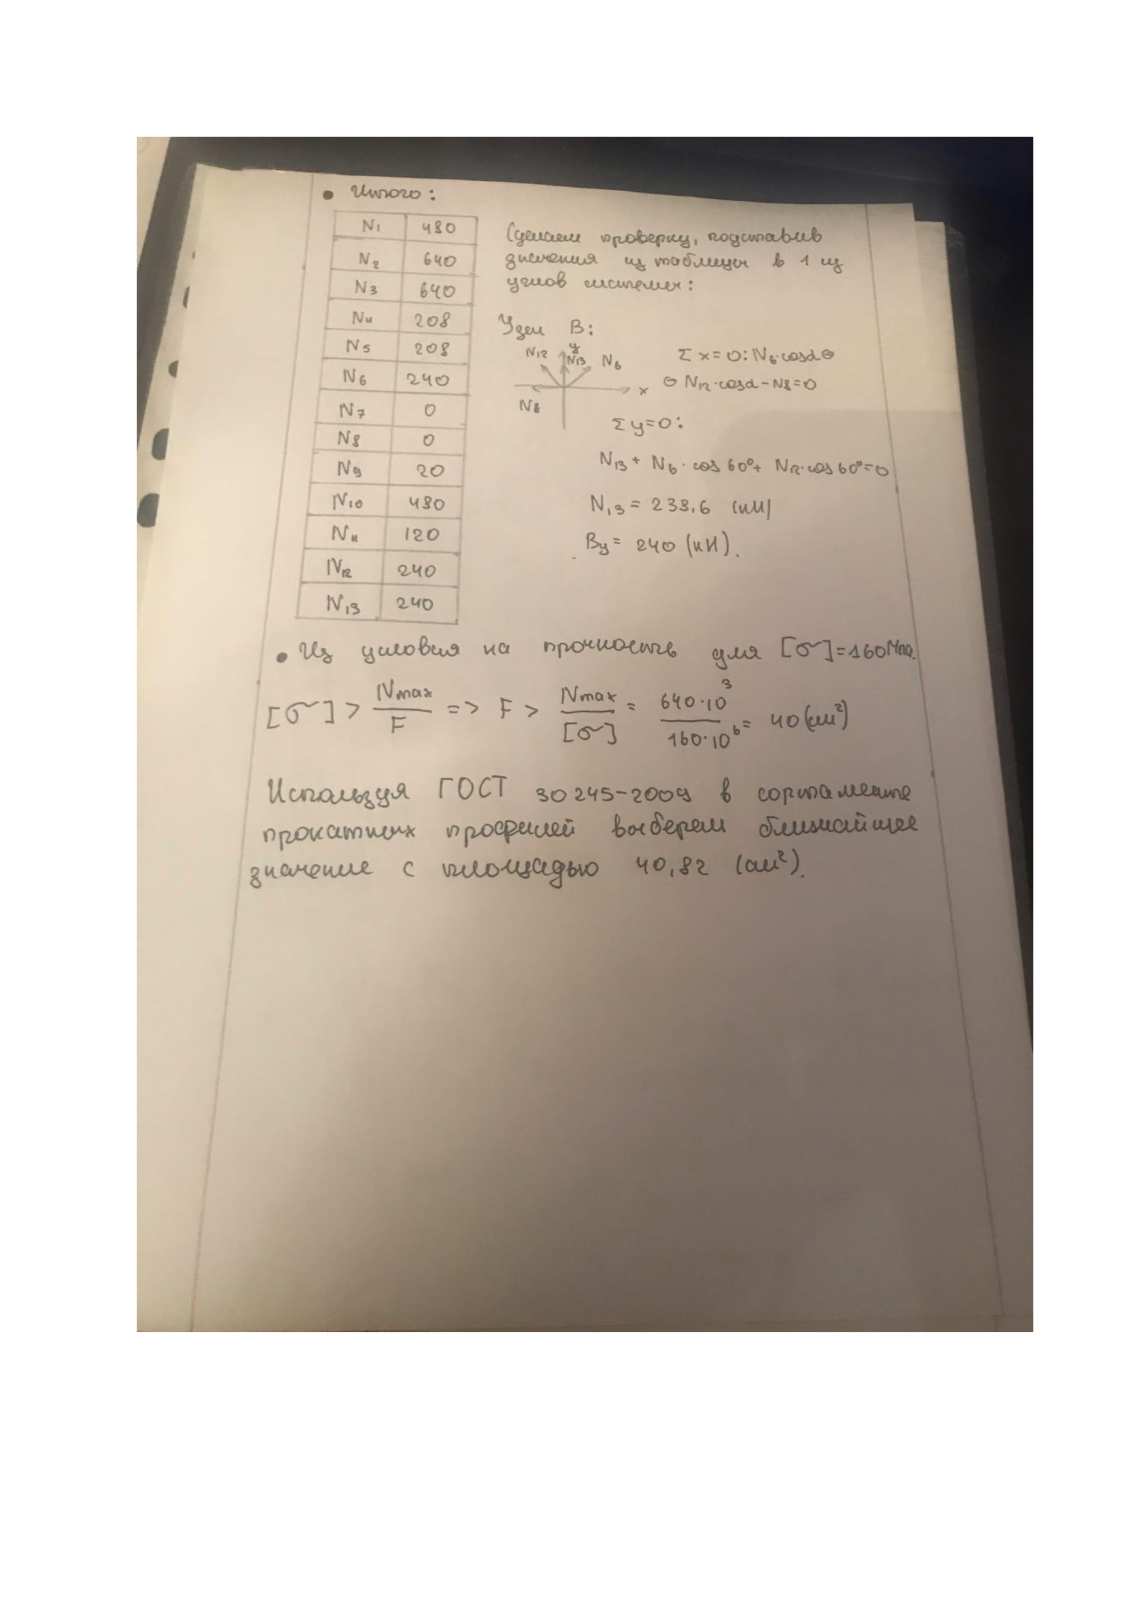 • Итого:
N1 480
N2 640
N3 640
N4 208
N5 208
N6 240
N7 0
N8 0
N9 20
N10 480
N11 120
N12 240
N13 240
Сделаем проверку, подставив
значения из таблицы в 1 из
узлов системы:
Узел B:
y
N12 N13 N6
x
N8
Σx=0: N6·cosα ⊖
⊖ N12·cosα-N8=0
Σy=0:
N13 + N6·cos 60°+ N12·cos 60°=0
N13 = 238,6 (кН)
By = 240 (кН).
• Из условия на прочность для [σ]=160МПа.
[σ] > Nmax/F => F > Nmax/[σ] = 640·10³/160·10⁶ = 40 (см²)
Используя ГОСТ 30245-2009 в сортаменте
прокатных профилей выберем ближайшее
значение с площадью 40,82 (см²).